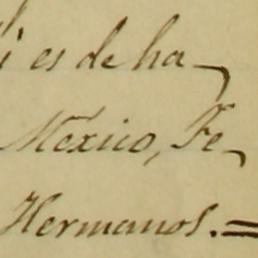 i es de ha-
Mexico, Fe-
Hermanos.=